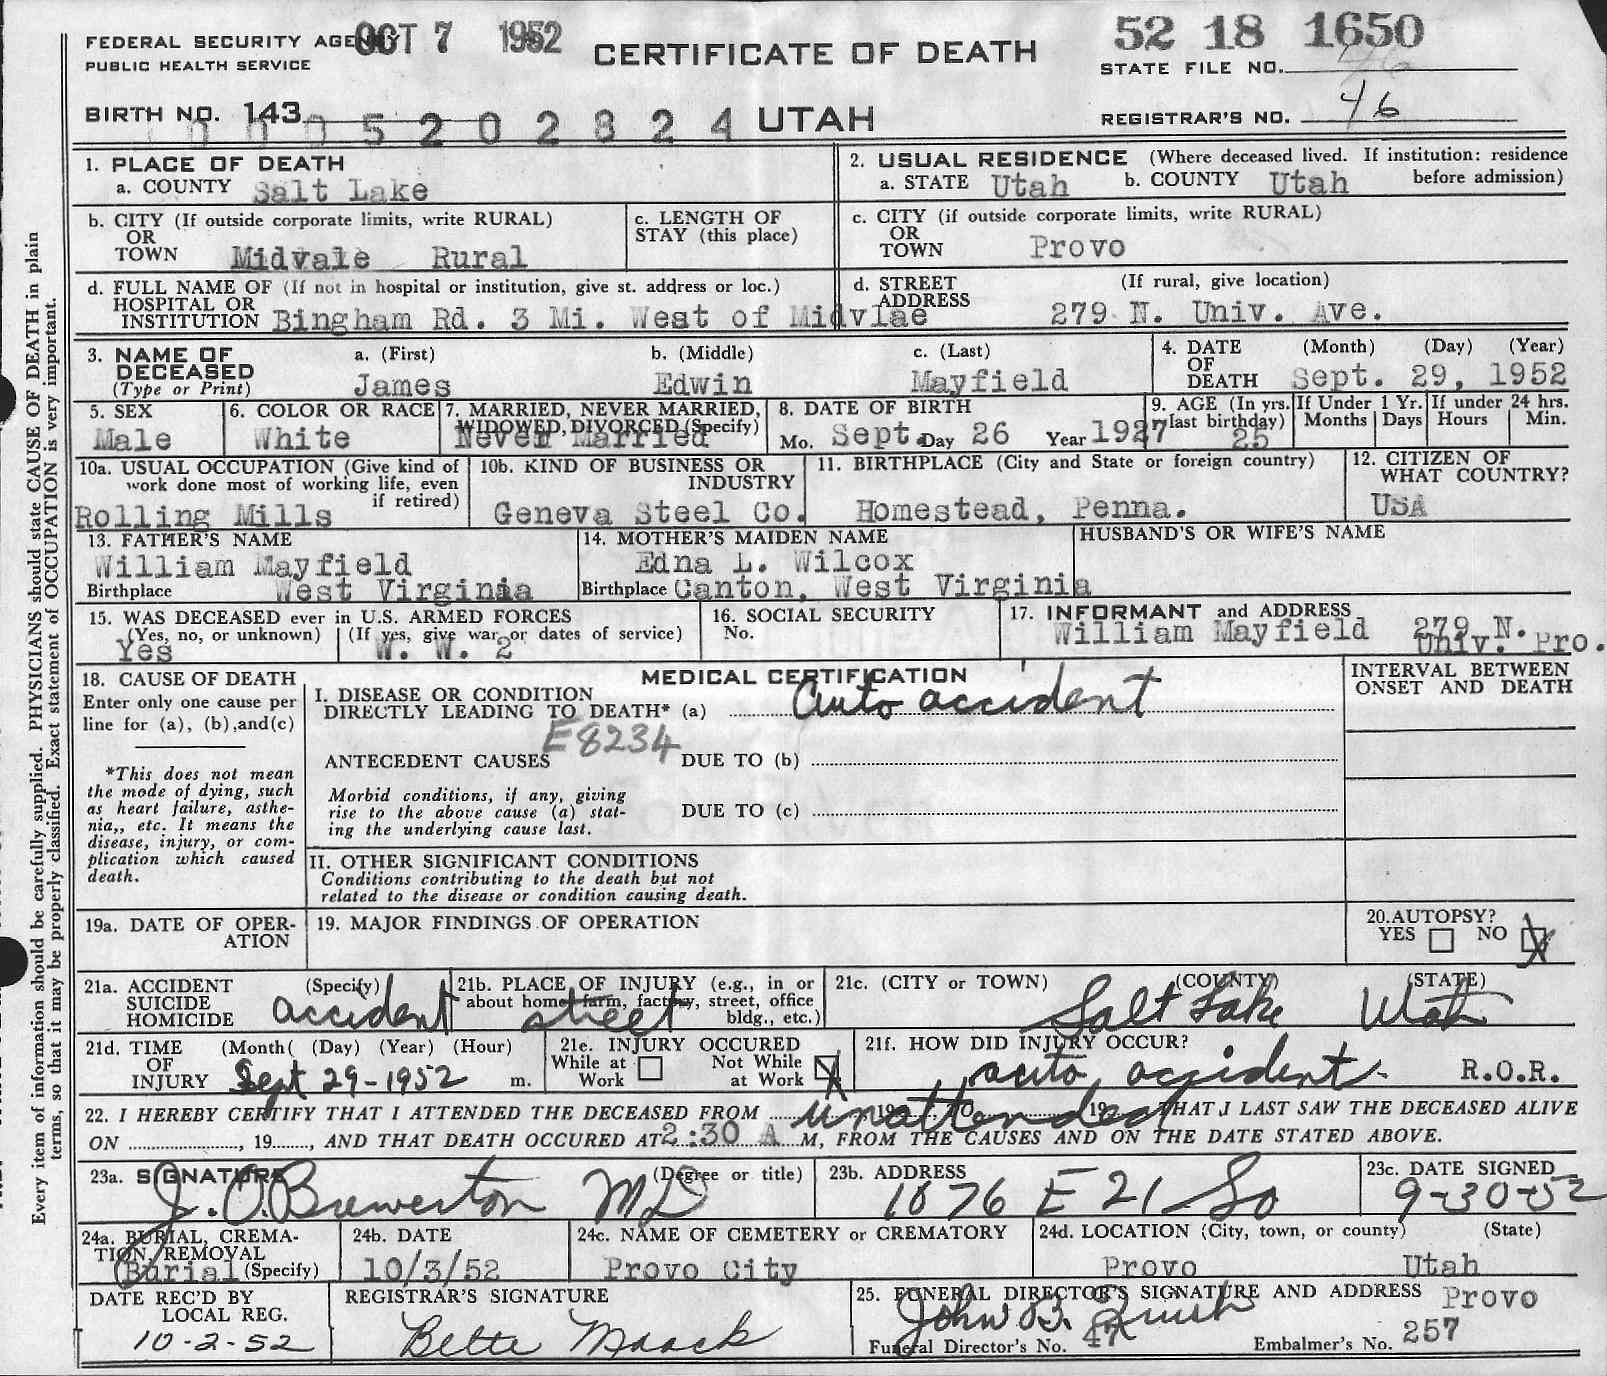 FEDERAL SECURITY AGENCY OCT 7 1952
PUBLIC HEALTH SERVICE
CERTIFICATE OF DEATH
52 18 1650
STATE FILE NO. 46
BIRTH NO. 143 0005202824 UTAH
REGISTRAR'S NO. 46
1. PLACE OF DEATH
a. COUNTY Salt Lake
2. USUAL RESIDENCE (Where deceased lived. If institution: residence before admission)
a. STATE Utah b. COUNTY Utah
b. CITY (If outside corporate limits, write RURAL)
OR
TOWN Midvale Rural
c. LENGTH OF
STAY (this place)
c. CITY (if outside corporate limits, write RURAL)
OR
TOWN Provo
d. FULL NAME OF (If not in hospital or institution, give st. address or loc.)
HOSPITAL OR
INSTITUTION Bingham Rd. 3 Mi. West of Midvlae
d. STREET (If rural, give location)
ADDRESS 279 N. Univ. Ave.
3. NAME OF
DECEASED
(Type or Print)
a. (First) James
b. (Middle) Edwin
c. (Last) Mayfield
4. DATE (Month) (Day) (Year)
OF
DEATH Sept. 29, 1952
5. SEX
Male
6. COLOR OR RACE
White
7. MARRIED, NEVER MARRIED,
WIDOWED, DIVORCED (Specify)
Never Married
8. DATE OF BIRTH
Mo. Sept. Day 26 Year 1927
9. AGE (In yrs.
last birthday)
25
If Under 1 Yr.
Months Days
If under 24 hrs.
Hours Min.
10a. USUAL OCCUPATION (Give kind of
work done most of working life, even
if retired)
Rolling Mills
10b. KIND OF BUSINESS OR
INDUSTRY
Geneva Steel Co.
11. BIRTHPLACE (City and State or foreign country)
Homestead, Penna.
12. CITIZEN OF
WHAT COUNTRY?
USA
13. FATHER'S NAME
William Mayfield
Birthplace West Virginia
14. MOTHER'S MAIDEN NAME
Edna L. Wilcox
Birthplace Canton, West Virginia
HUSBAND'S OR WIFE'S NAME
15. WAS DECEASED ever in U.S. ARMED FORCES
(Yes, no, or unknown) (If yes, give war or dates of service)
Yes W. W. 2
16. SOCIAL SECURITY
No.
17. INFORMANT and ADDRESS
William Mayfield 279 N.
Univ. Pro.
18. CAUSE OF DEATH
Enter only one cause per
line for (a), (b),and(c)
*This does not mean
the mode of dying, such
as heart failure, asthe-
nia,, etc. It means the
disease, injury, or com-
plication which caused
death.
MEDICAL CERTIFICATION
I. DISEASE OR CONDITION
DIRECTLY LEADING TO DEATH* (a) auto accident
E8234
ANTECEDENT CAUSES DUE TO (b)
Morbid conditions, if any, giving
rise to the above cause (a) stat-
ing the underlying cause last.
DUE TO (c)
II. OTHER SIGNIFICANT CONDITIONS
Conditions contributing to the death but not
related to the disease or condition causing death.
INTERVAL BETWEEN
ONSET AND DEATH
19a. DATE OF OPER-
ATION
19. MAJOR FINDINGS OF OPERATION
20.AUTOPSY?
YES NO X
21a. ACCIDENT (Specify)
SUICIDE
HOMICIDE accident
21b. PLACE OF INJURY (e.g., in or
about home, farm, factory, street, office
bldg., etc.)
street
21c. (CITY or TOWN) (COUNTY) (STATE)
Salt Lake Utah
21d. TIME (Month( (Day) (Year) (Hour)
OF
INJURY Sept 29-1952 m.
21e. INJURY OCCURED
While at Work Not While at Work X
21f. HOW DID INJURY OCCUR?
auto accident. R.O.R.
22. I HEREBY CERTIFY THAT I ATTENDED THE DECEASED FROM unattended 19, TO 19 THAT I LAST SAW THE DECEASED ALIVE
ON , 19 , AND THAT DEATH OCCURED AT 2:30 A M, FROM THE CAUSES AND ON THE DATE STATED ABOVE.
23a. SIGNATURE (Degree or title)
J. O. Brewerton MD
23b. ADDRESS
1076 E 21 So
23c. DATE SIGNED
9-30-52
24a. BURIAL, CREMA-
TION, REMOVAL
Burial (Specify)
24b. DATE
10/3/52
24c. NAME OF CEMETERY OR CREMATORY
Provo City
24d. LOCATION (City, town, or county) (State)
Provo Utah
DATE REC'D BY
LOCAL REG.
10-2-52
REGISTRAR'S SIGNATURE
Bette Maack
25. FUNERAL DIRECTOR'S SIGNATURE AND ADDRESS Provo
John B.
Funeral Director's No. 47 Embalmer's No. 257
Every item of information should be carefully supplied. PHYSICIANS should state CAUSE OF DEATH in plain
terms, so that it may be properly classified. Exact statement of OCCUPATION is very important.